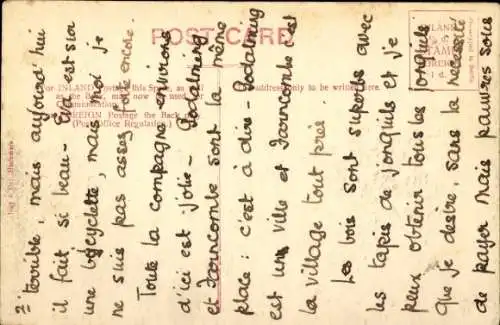 POST CARD
For INLAND Postage this Space, as well as the Back, may now be used for Communication.
FOREIGN Postage the Back only. (Post Office Regulation.)
The address only to be written here.
INLAND
½d.
STAMP
FOREIGN
1d.
2: terrible, mais aujourd'hui
il fait si beau - Eva est sur
une bicyclette, mais moi je
ne suis pas assez forte encore.
Toute la compagne environs
d'ici est jolie - Godalming
et Farncombe sont la même
place: c'est à dire - Godalming
est une ville et Farncombe est
la village tout près.
Les bois sont superbes avec
les tapis de jonquils et je
peux obtenir tous les jonquils
que je desire, sans la necessité
de payer mais de pauvres sous